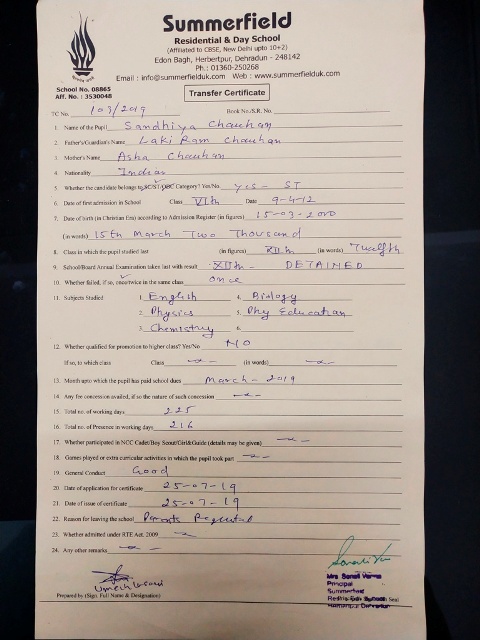 Summerfield
Residential & Day School
(Affiliated to CBSE, New Delhi upto 10+2)
Edon Bagh, Herbertpur, Dehradun - 248142
Ph.: 01360-250268
Email : info@summerfielduk.com Web : www.summerfielduk.com
School No. 08865
Aff. No. : 3530048
Transfer Certificate
TC No. 103/2019 Book No./S.R. No.
1. Name of the Pupil Sandhiya Chauhan
2. Father's/Guardian's Name Laki Ram Chauhan
3. Mother's Name Asha Chauhan
4. Nationality Indian
5. Whether the candidate belongs to SC/ST/OBC Category? Yes/No yes - ST
6. Date of first admission in School Class VIth Date 9-4-12
7. Date of birth (in Christian Era) according to Admission Register (in figures) 15-03-2000
(in words) 15th March Two Thousand
8. Class in which the pupil studied last (in figures) XIIth (in words) Twelfth
9. School/Board Annual Examination taken last with result XIIth - DETAINED
10. Whether failed, if so, once/twice in the same class once
11. Subjects Studied 1. English 4. Biology
2. Physics 5. Phy Education
3. Chemistry 6.
12. Whether qualified for promotion to higher class? Yes/No NO
If so, to which class Class (in words)
13. Month upto which the pupil has paid school dues March - 2019
14. Any fee concession availed, if so the nature of such concession
15. Total no. of working days 225
16. Total no. of Presence in working days 216
17. Whether participated in NCC Cadet/Boy Scout/Girl&Guide (details may be given)
18. Games played or extra curricular activities in which the pupil took part
19. General Conduct Good
20. Date of application for certificate 25-07-19
21. Date of issue of certificate 25-07-19
22. Reason for leaving the school Parents Request
23. Whether admitted under RTE Act, 2009
24. Any other remarks
Mrs Sonali Verma
Principal
Summerfield
Prepared by (Sign. Full Name & Designation) Seal
Herbertpur Dehradun